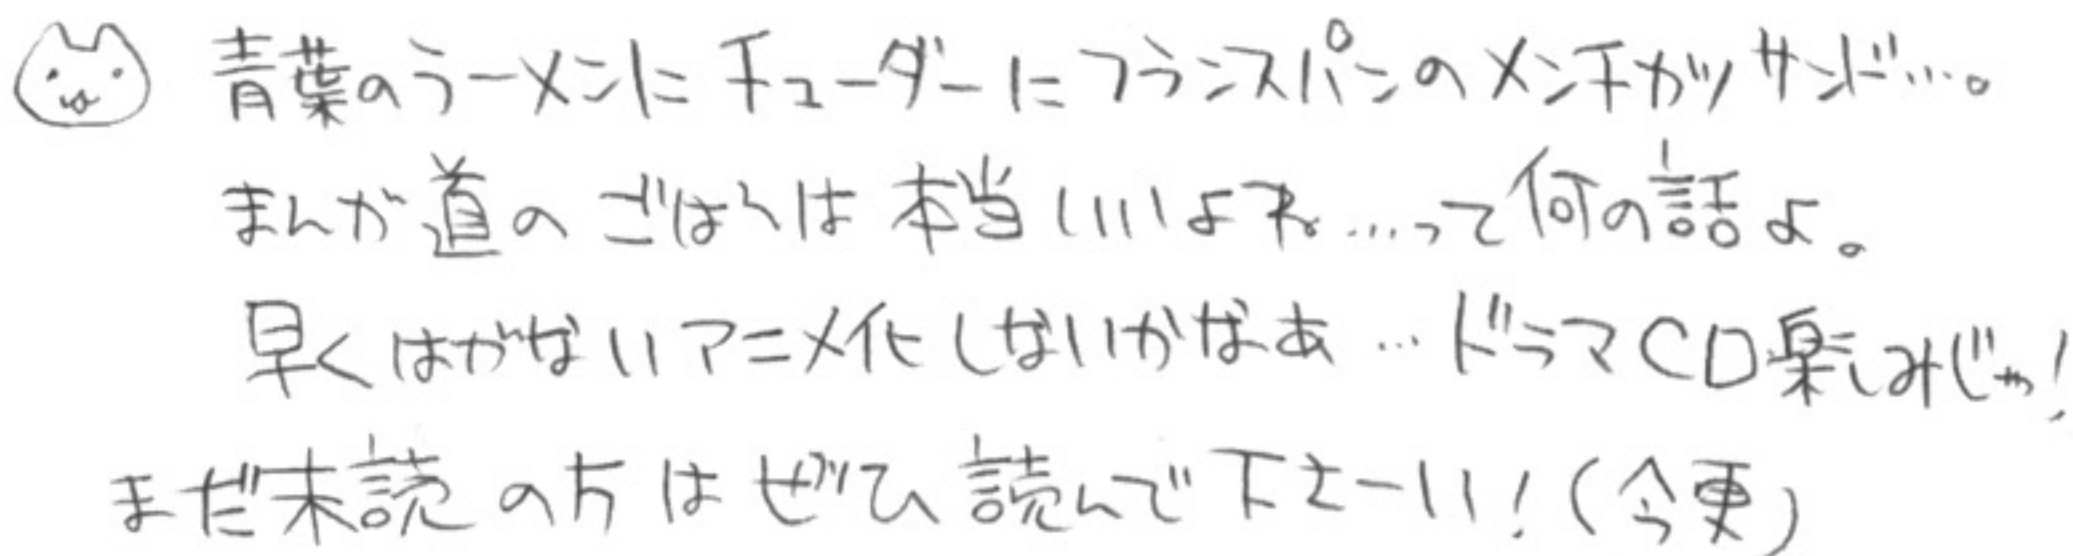 青葉のラーメンにチューダーにフランスパンのメンチカツサンド…。
まんが道のごはんは本当いいよね…って何の話よ。
早くはがないアニメ化しないかなあ…ドラマCD楽しみじゃ!
まだ未読の方はぜひ読んで下さーい!(今更)